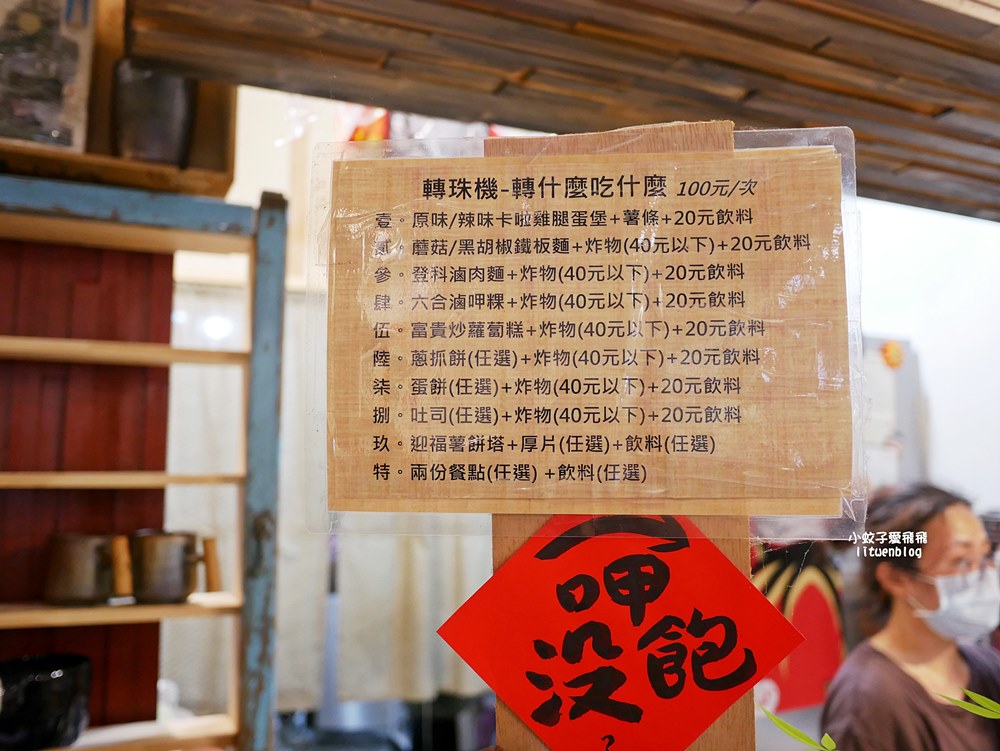 轉珠機-轉什麼吃什麼 100元/次
壹。原味/辣味卡啦雞腿蛋堡+薯條+20元飲料
貳。蘑菇/黑胡椒鐵板麵+炸物(40元以下)+20元飲料
參。登科滷肉麵+炸物(40元以下)+20元飲料
肆。六合滷呷粿+炸物(40元以下)+20元飲料
伍。富貴炒蘿蔔糕+炸物(40元以下)+20元飲料
陸。蔥抓餅(任選)+炸物(40元以下)+20元飲料
柒。蛋餅(任選)+炸物(40元以下)+20元飲料
捌。吐司(任選)+炸物(40元以下)+20元飲料
玖。迎福薯餅塔+厚片(任選)+飲料(任選)
特。兩份餐點(任選) +飲料(任選)
呷
飽
沒
?
小蚊子愛飛飛
lituenblog